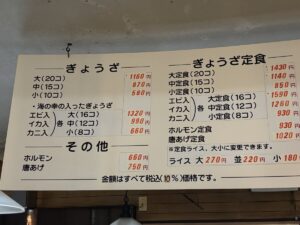 ぎょうざ
大(20コ) 1160円
中(15コ) 870円
小(10コ) 580円
・海の幸の入ったぎょうざ
エビ入 イカ入 カニ入 各
大(16コ) 1320円
中(12コ) 990円
小(8コ) 660円
その他
ホルモン 660円
唐あげ 750円
ぎょうざ定食
大定食(20コ) 1430円
中定食(15コ) 1140円
小定食(10コ)
エビ入 イカ入 カニ入 各
大定食(16コ)
中定食(12コ) 1260円
小定食(8コ) 930円
ホルモン定食 930円
唐あげ定食 1020円
※定食ライス、大小に変更できます。
ライス 大270円 並220円 小180
金額はすべて税込(10%)価格です。